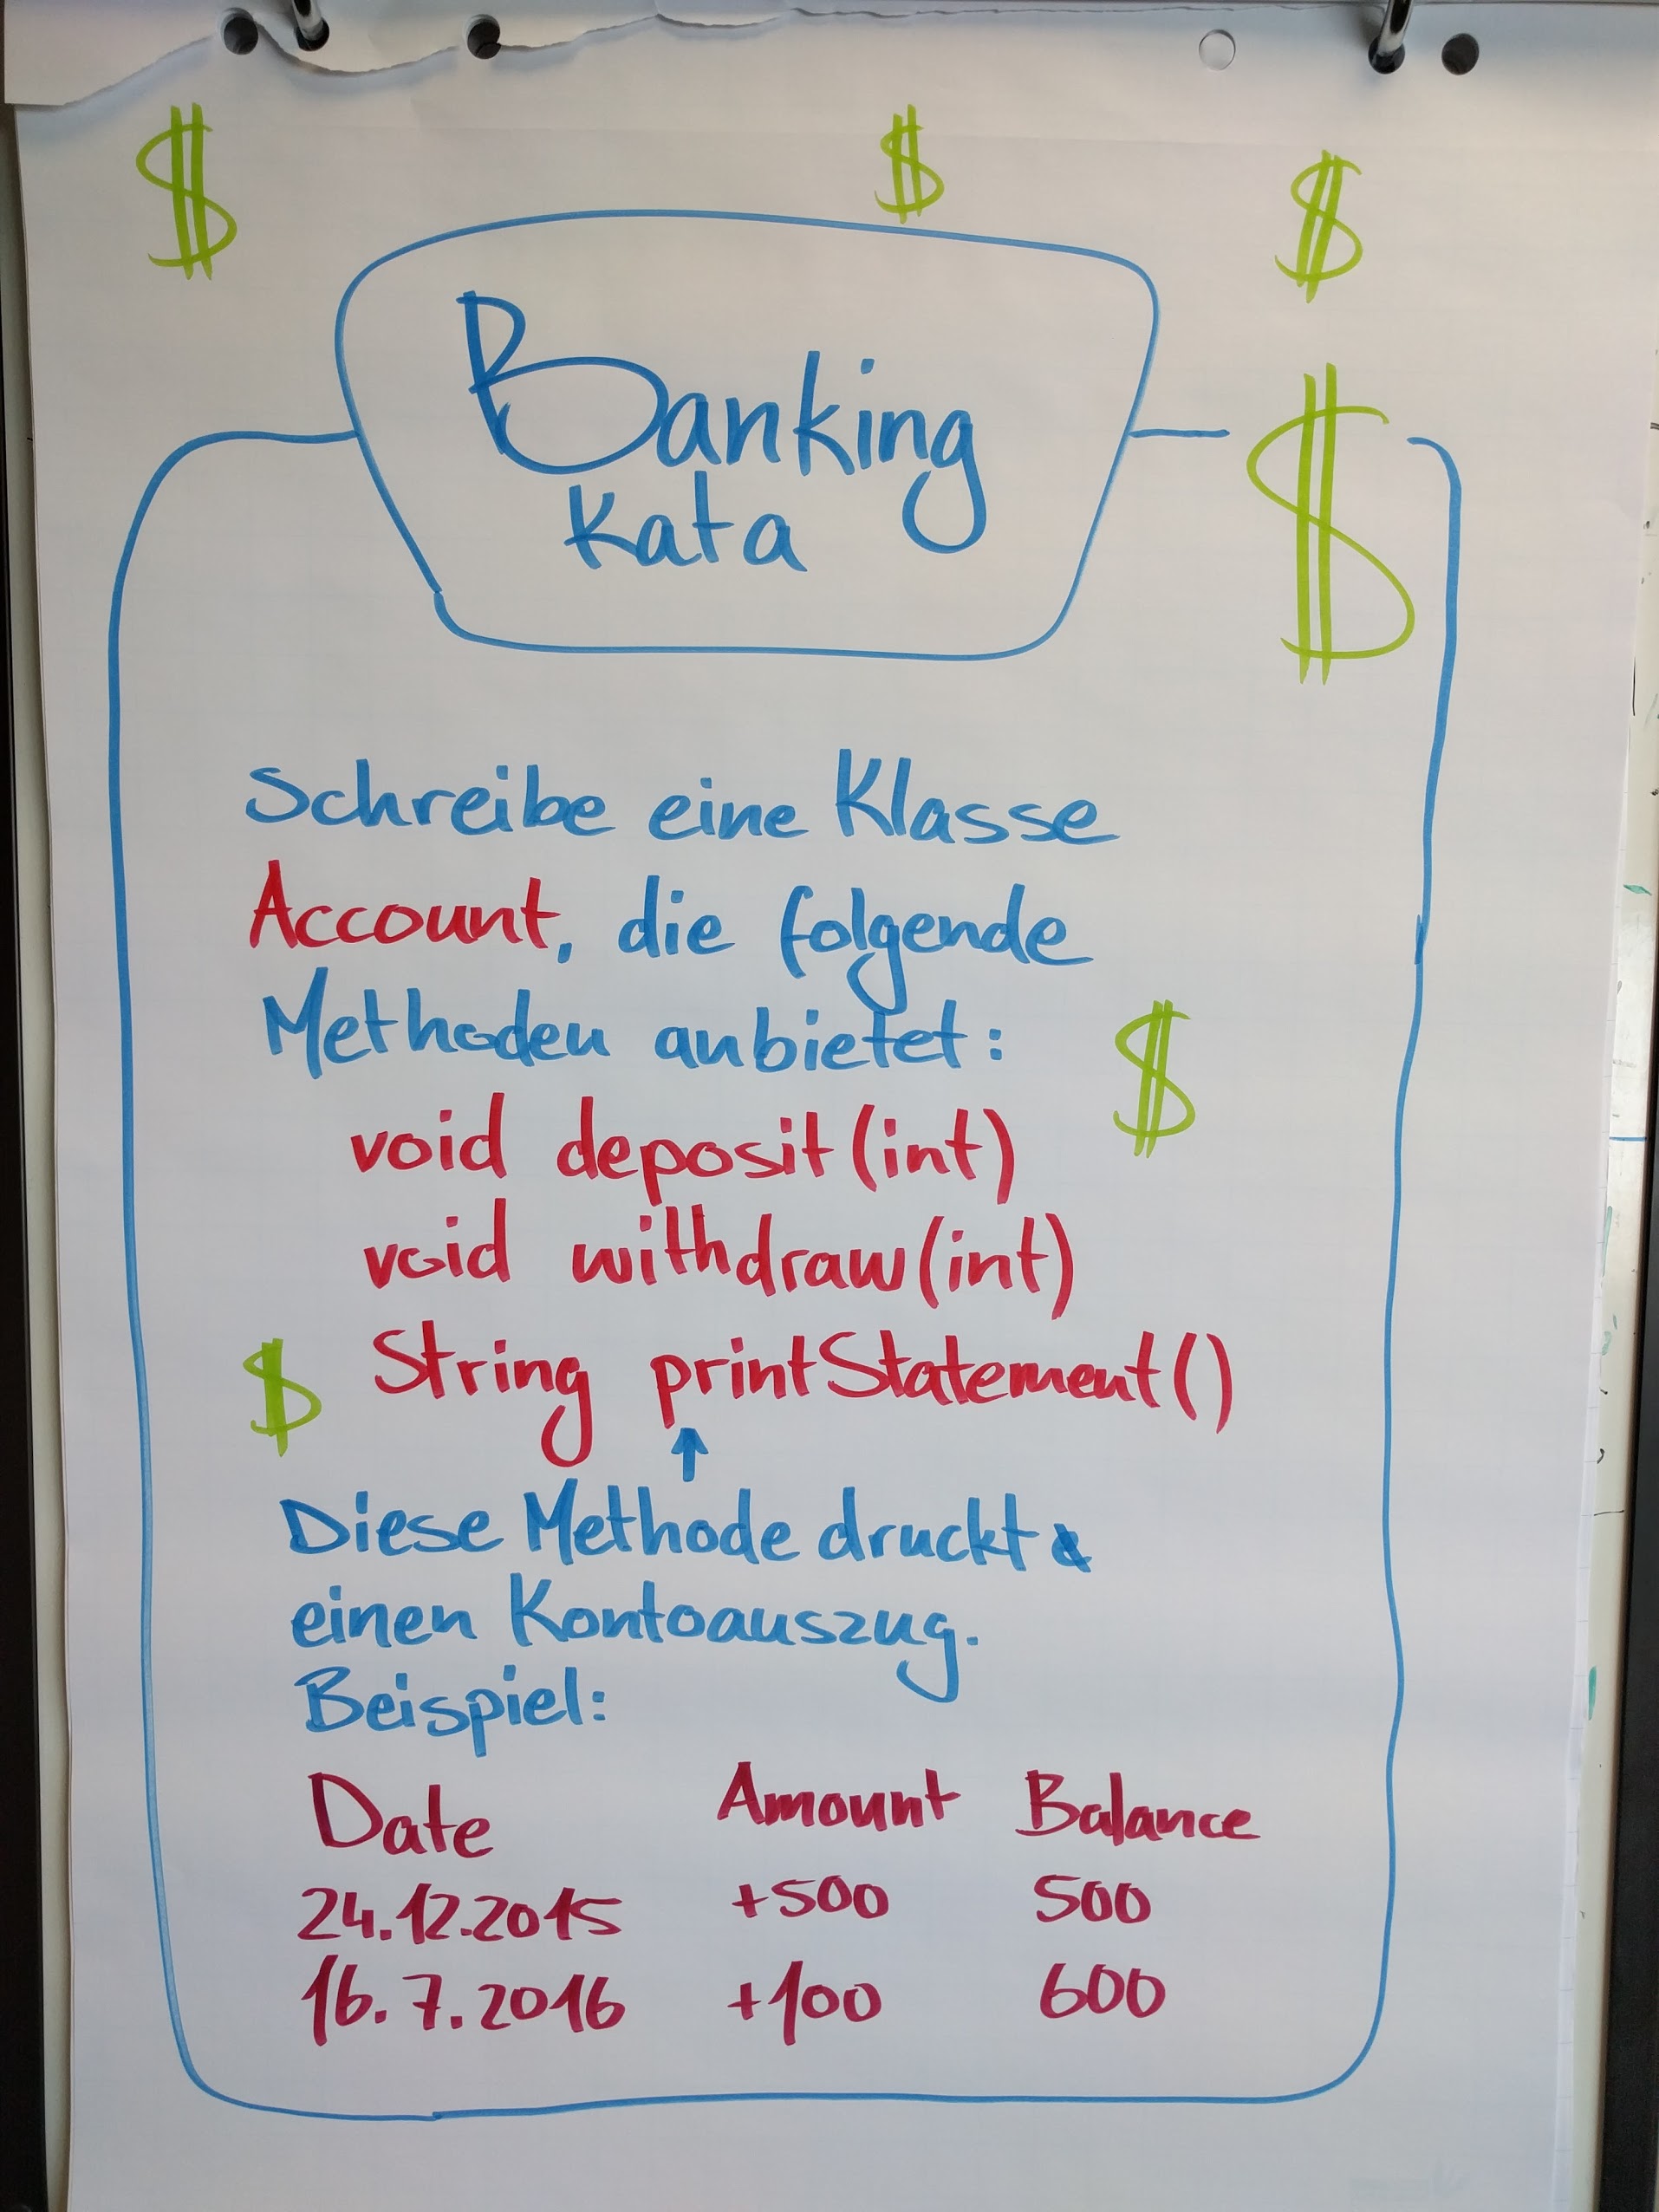 $ $ $
Banking
Kata
$
Schreibe eine Klasse
Account, die folgende
Methoden anbietet:
$
void deposit(int)
void withdraw(int)
$ String printStatement()
↑
Diese Methode druckt
einen Kontoauszug.
Beispiel:
Date Amount Balance
24.12.2015 +500 500
16.7.2016 +100 600